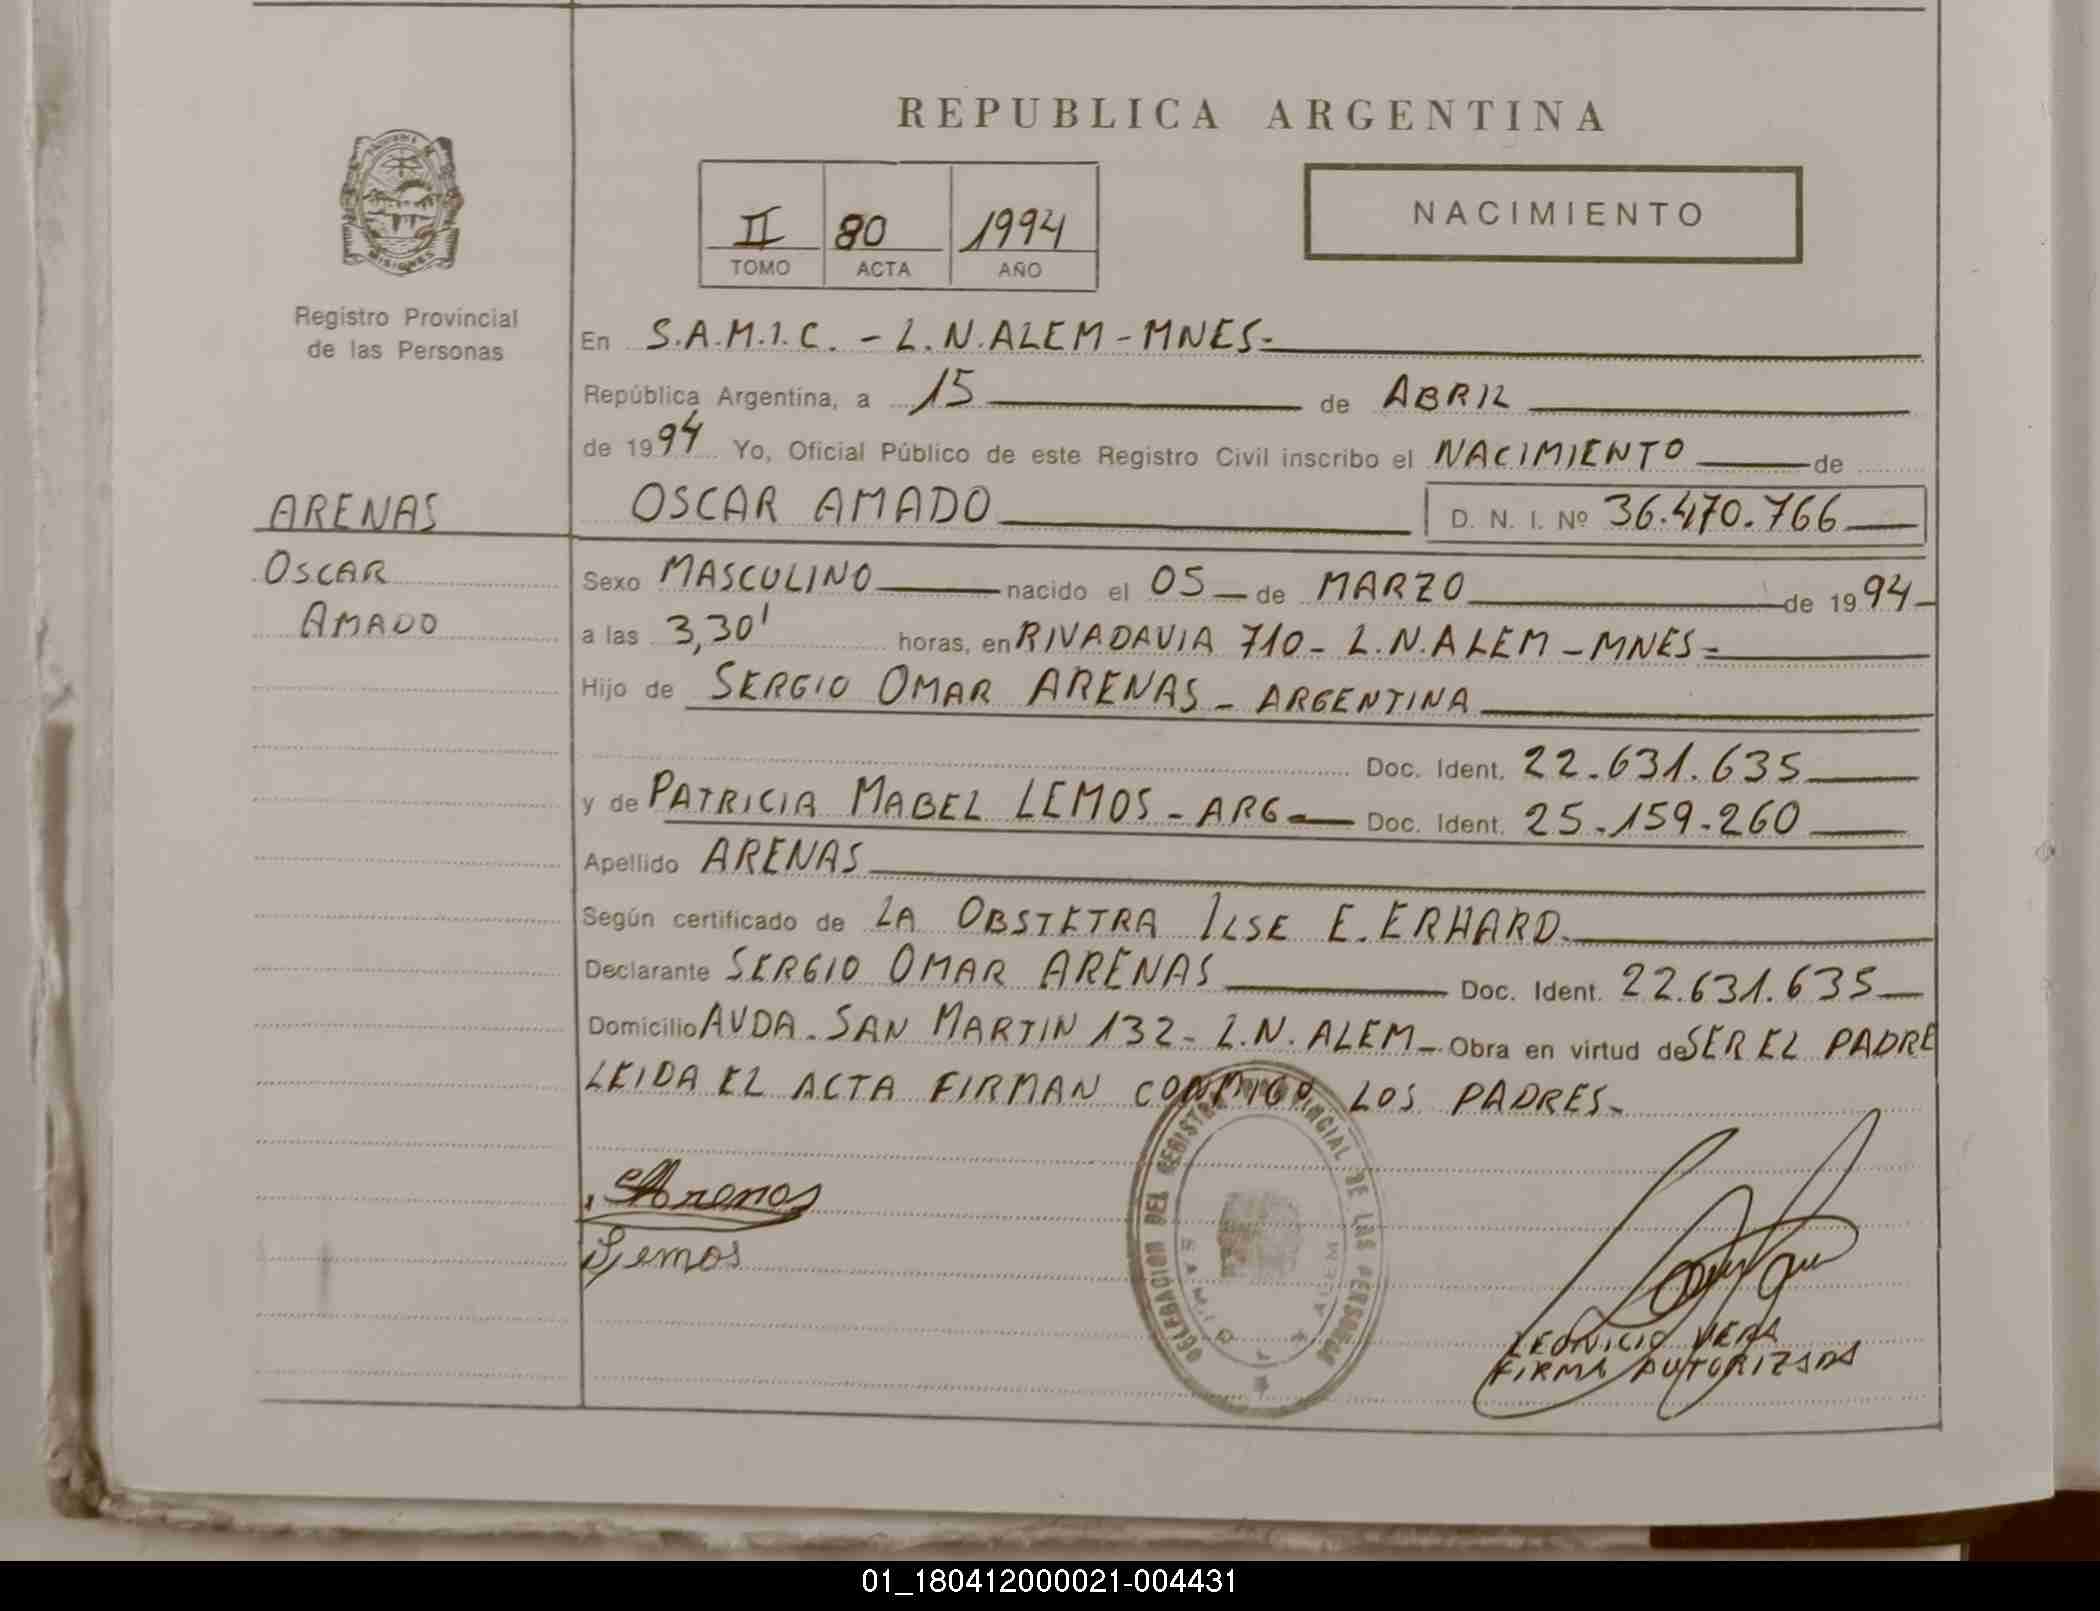 REPUBLICA ARGENTINA
MISIONES
Registro Provincial
de las Personas
II 80 1994
TOMO ACTA AÑO
NACIMIENTO
En S.A.M.I.C. - L.N.ALEM - MNES-
República Argentina, a 15 de ABRIL
de 1994 Yo, Oficial Público de este Registro Civil inscribo el NACIMIENTO de
ARENAS
OSCAR AMADO D. N. I. Nº 36.470.766
OSCAR
AMADO
Sexo MASCULINO nacido el 05 de MARZO de 1994
a las 3,30' horas, en RIVADAVIA 710 - L.N.ALEM - MNES-
Hijo de SERGIO OMAR ARENAS - ARGENTINA
Doc. Ident. 22.631.635
y de PATRICIA MABEL LEMOS - ARG Doc. Ident. 25.159.260
Apellido ARENAS
Según certificado de LA OBSTETRA ILSE E. ERHARD.
Declarante SERGIO OMAR ARENAS Doc. Ident. 22.631.635
Domicilio AVDA. SAN MARTIN 132 - L.N. ALEM - Obra en virtud de SER EL PADRE
LEIDA EL ACTA FIRMAN CONMIGO LOS PADRES-
SArenas
Lemos
DELEGACION DEL REGISTRO PROVINCIAL DE LAS PERSONAS
ALEM
LEONICIO VERA
FIRMA AUTORIZADA
01_180412000021-004431